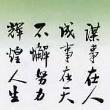 謀事在人
成事在天
不懈努力
輝煌人生